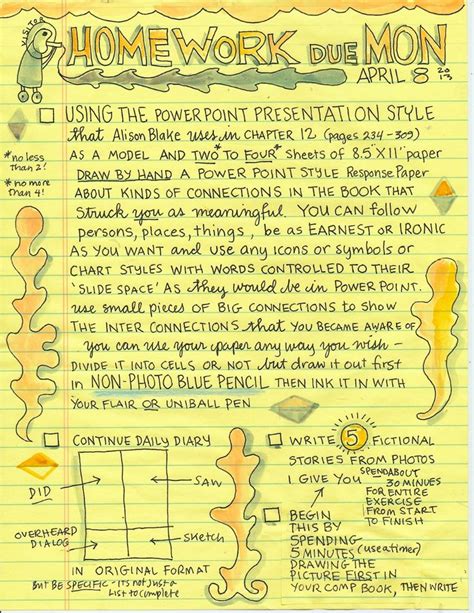 VISITOR
HOMEWORK DUE MON
APRIL 8 2013
USING THE POWERPOINT PRESENTATION STYLE
that Alison Blake uses in CHAPTER 12 (pages 234-309)
AS A MODEL AND TWO* TO FOUR* sheets of 8.5"X11" paper
*no less than 2!
*no more than 4!
DRAW BY HAND A POWER POINT STYLE Response Paper
ABOUT KINDS OF CONNECTIONS IN THE BOOK THAT
Struck you as meaningful. YOU CAN follow
persons, places, things, be as EARNEST or IRONIC
AS YOU WANT and use any icons or symbols or
CHART STYLES WITH WORDS CONTROLLED TO THEIR
'SLIDE SPACE' AS they would be in POWERPOINT.
use small pieces of BIG CONNECTIONS TO SHOW
THE INTER CONNECTIONS that YOU BECAME AWARE OF
you can use your paper any way you wish –
DIVIDE IT INTO CELLS OR NOT but draw it out first
in NON-PHOTO BLUE PENCIL THEN INK IT IN WITH
YOUR FLAIR OR UNIBALL PEN
CONTINUE DAILY DIARY
DID
SAW
OVERHEARD
DIALOG
sketch
IN ORIGINAL FORMAT
BUT BE SPECIFIC - its not just a
List to complete
WRITE 5 FICTIONAL
STORIES FROM PHOTOS
I GIVE YOU
SPEND ABOUT
30 MINUTES
FOR ENTIRE
EXERCISE
FROM START
TO FINISH
BEGIN
THIS BY
SPENDING
5 MINUTES (use a timer)
DRAWING THE
PICTURE FIRST in
YOUR COMP BOOK, THEN WRITE